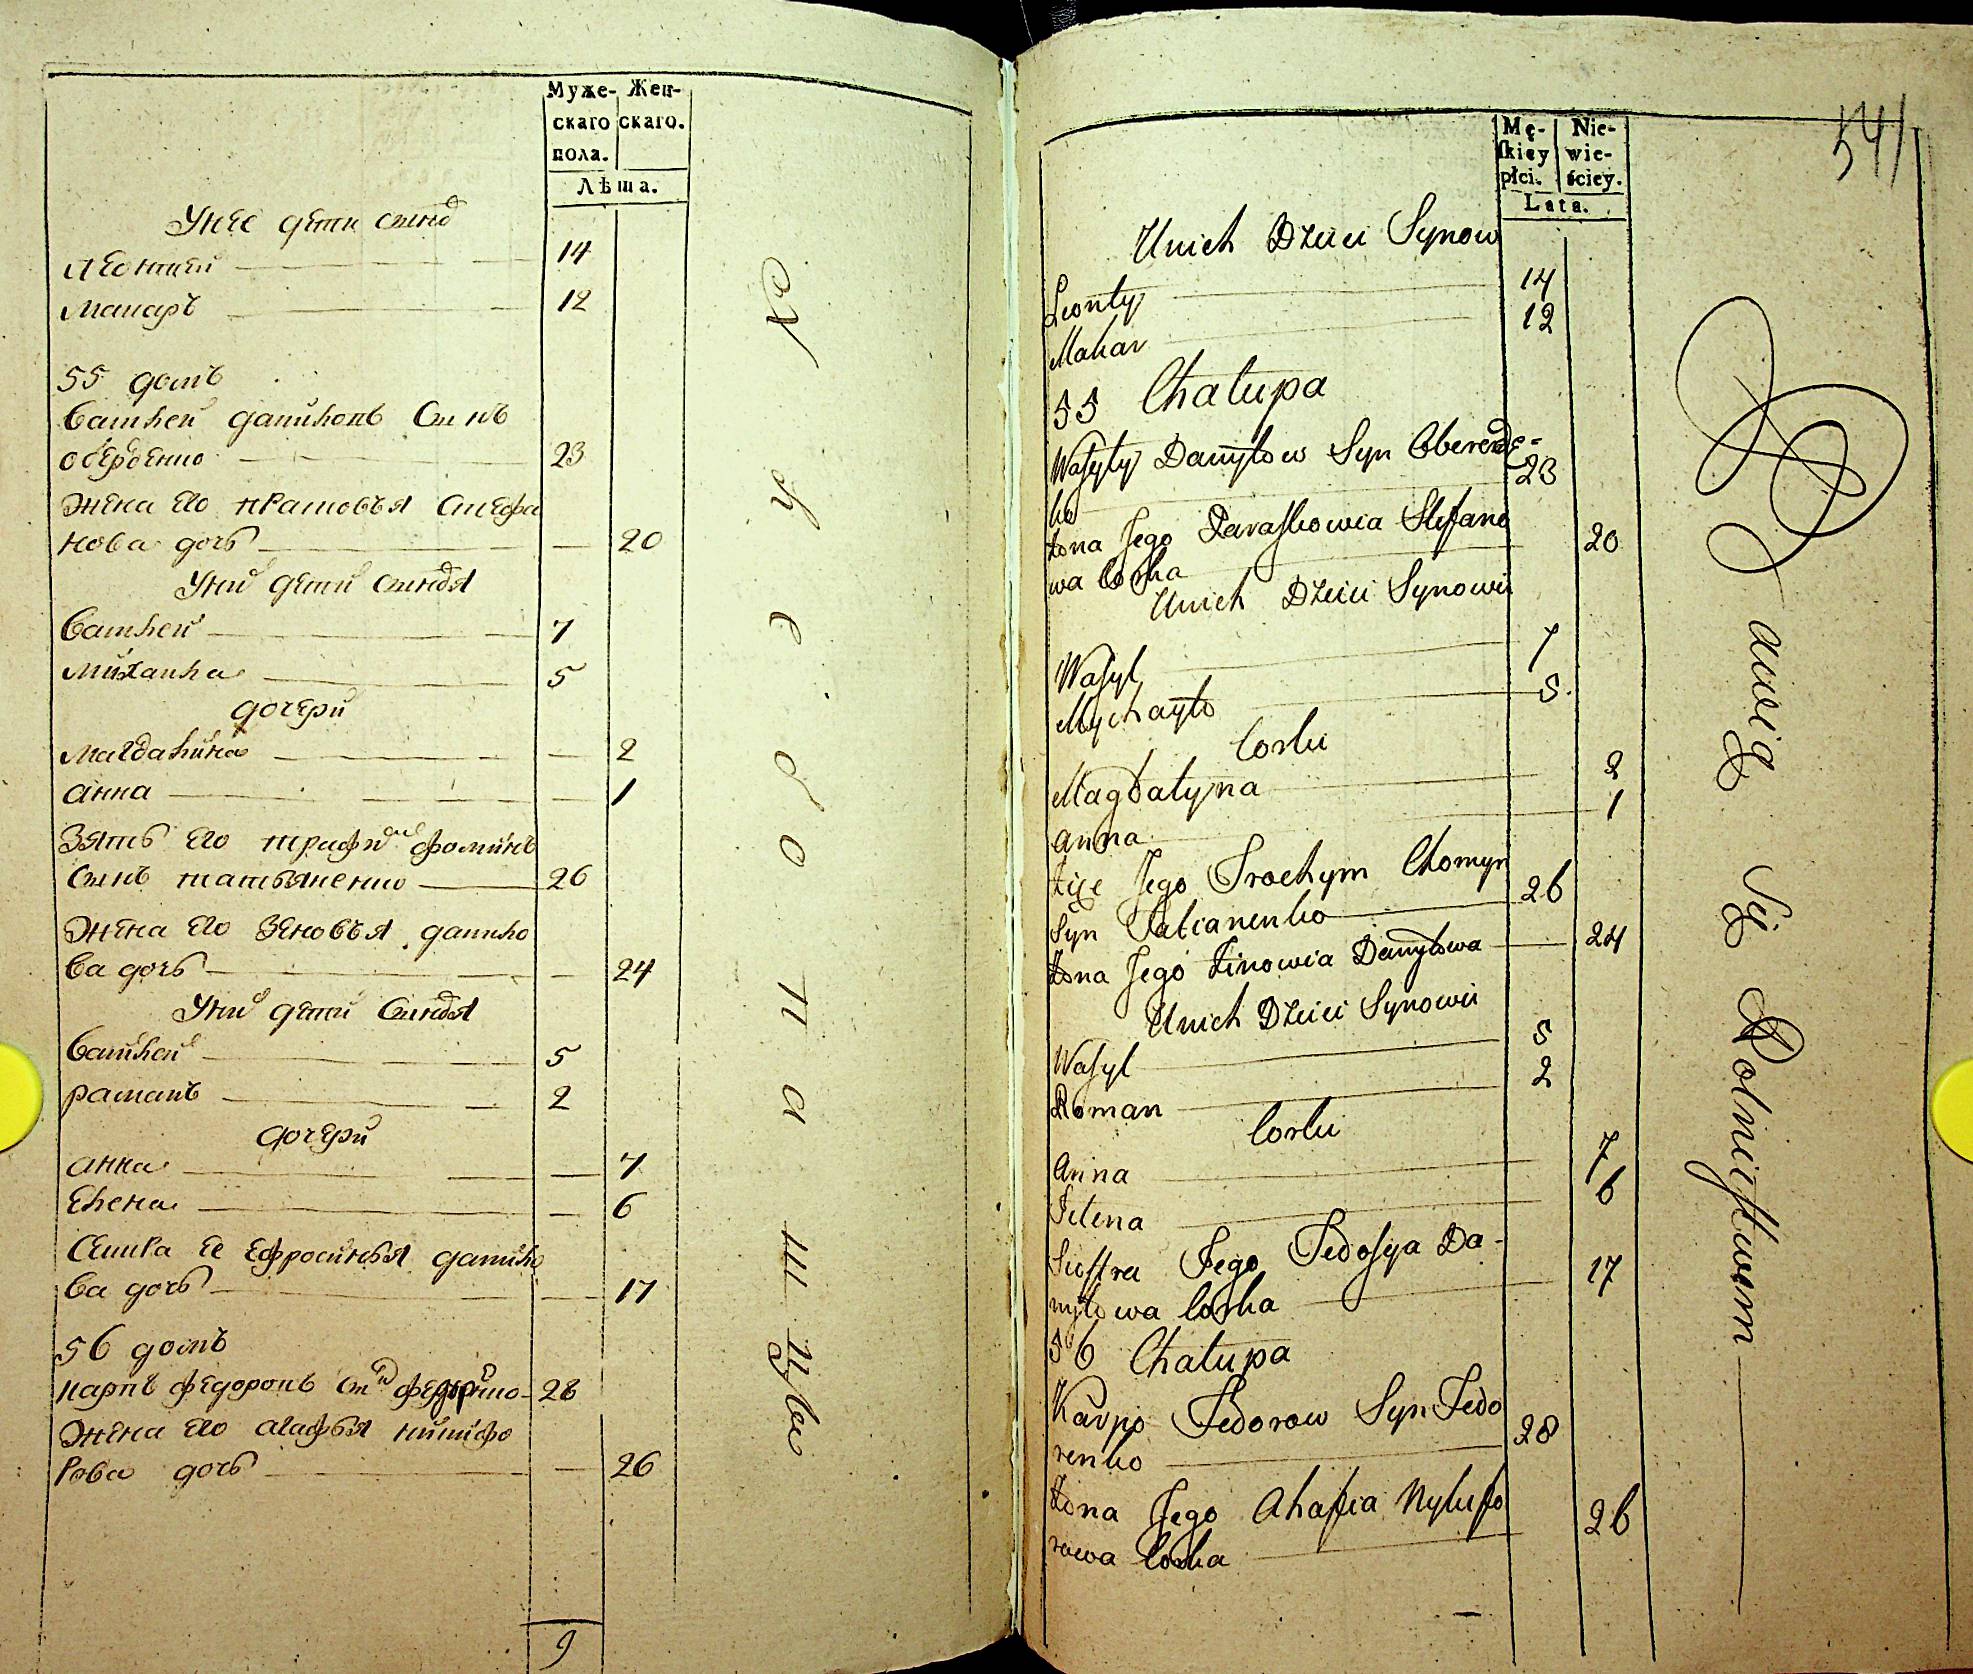 Муже-
скаго
пола.
Жен-
скаго.
Лѣта.
У нее дети сынов
Леонтий 14
Макаръ 12
55 домъ
Василей данилопъ Сынъ
оберденко 23
Жена его прасковья Стефа
нова дочь 20
У них дети сыновя
Василей 7
Михайла 5
дочери
Магдалина 2
анна 1
Зять его трафим фоминъ
Сынъ татьяненко 26
Жена его Зеновья данило
ва дочь 24
У них дети Сыновя
Василей 5
раманъ 2
дочери
анна 7
Елена 6
Сестра ее Ефросинья данило
ва дочь 17
56 домъ
карпъ федоропъ Сын 28
Жена его агафья никифо
Рова дочь 26
9
Хлебопашцы
541
Mę-
skiey
płci.
Nie-
wie-
ściey.
Lata.
Unich Dzieci Synow
Leonty 14
Makar 12
55 Chalupa
Wasyly Danylow Syn Oberede-
ko 23
Żona Jego Paraskowia Stefano
wa Corka 20
Unich Dzieci Synowie
Wasyl 7
Mychayło 5
Corki
Magdalyna 2
anna 1
Zięc Jego Trochym Chomyn
Syn Tatianenko 26
Żona Jego Zinowia Danylowa 24
Unich Dzieci Synowie
Wasyl 5
Roman 2
Corki
Anna 7
Jelena 6
Siostra Jego Fedosya Da-
nyłowa Corka 17
56 Chalupa
Karpo Fedorow Syn Fedo
renko 28
Żona Jego Ahafia Nykifo
rowa Corka 26
Bawią Się Rolnictwem